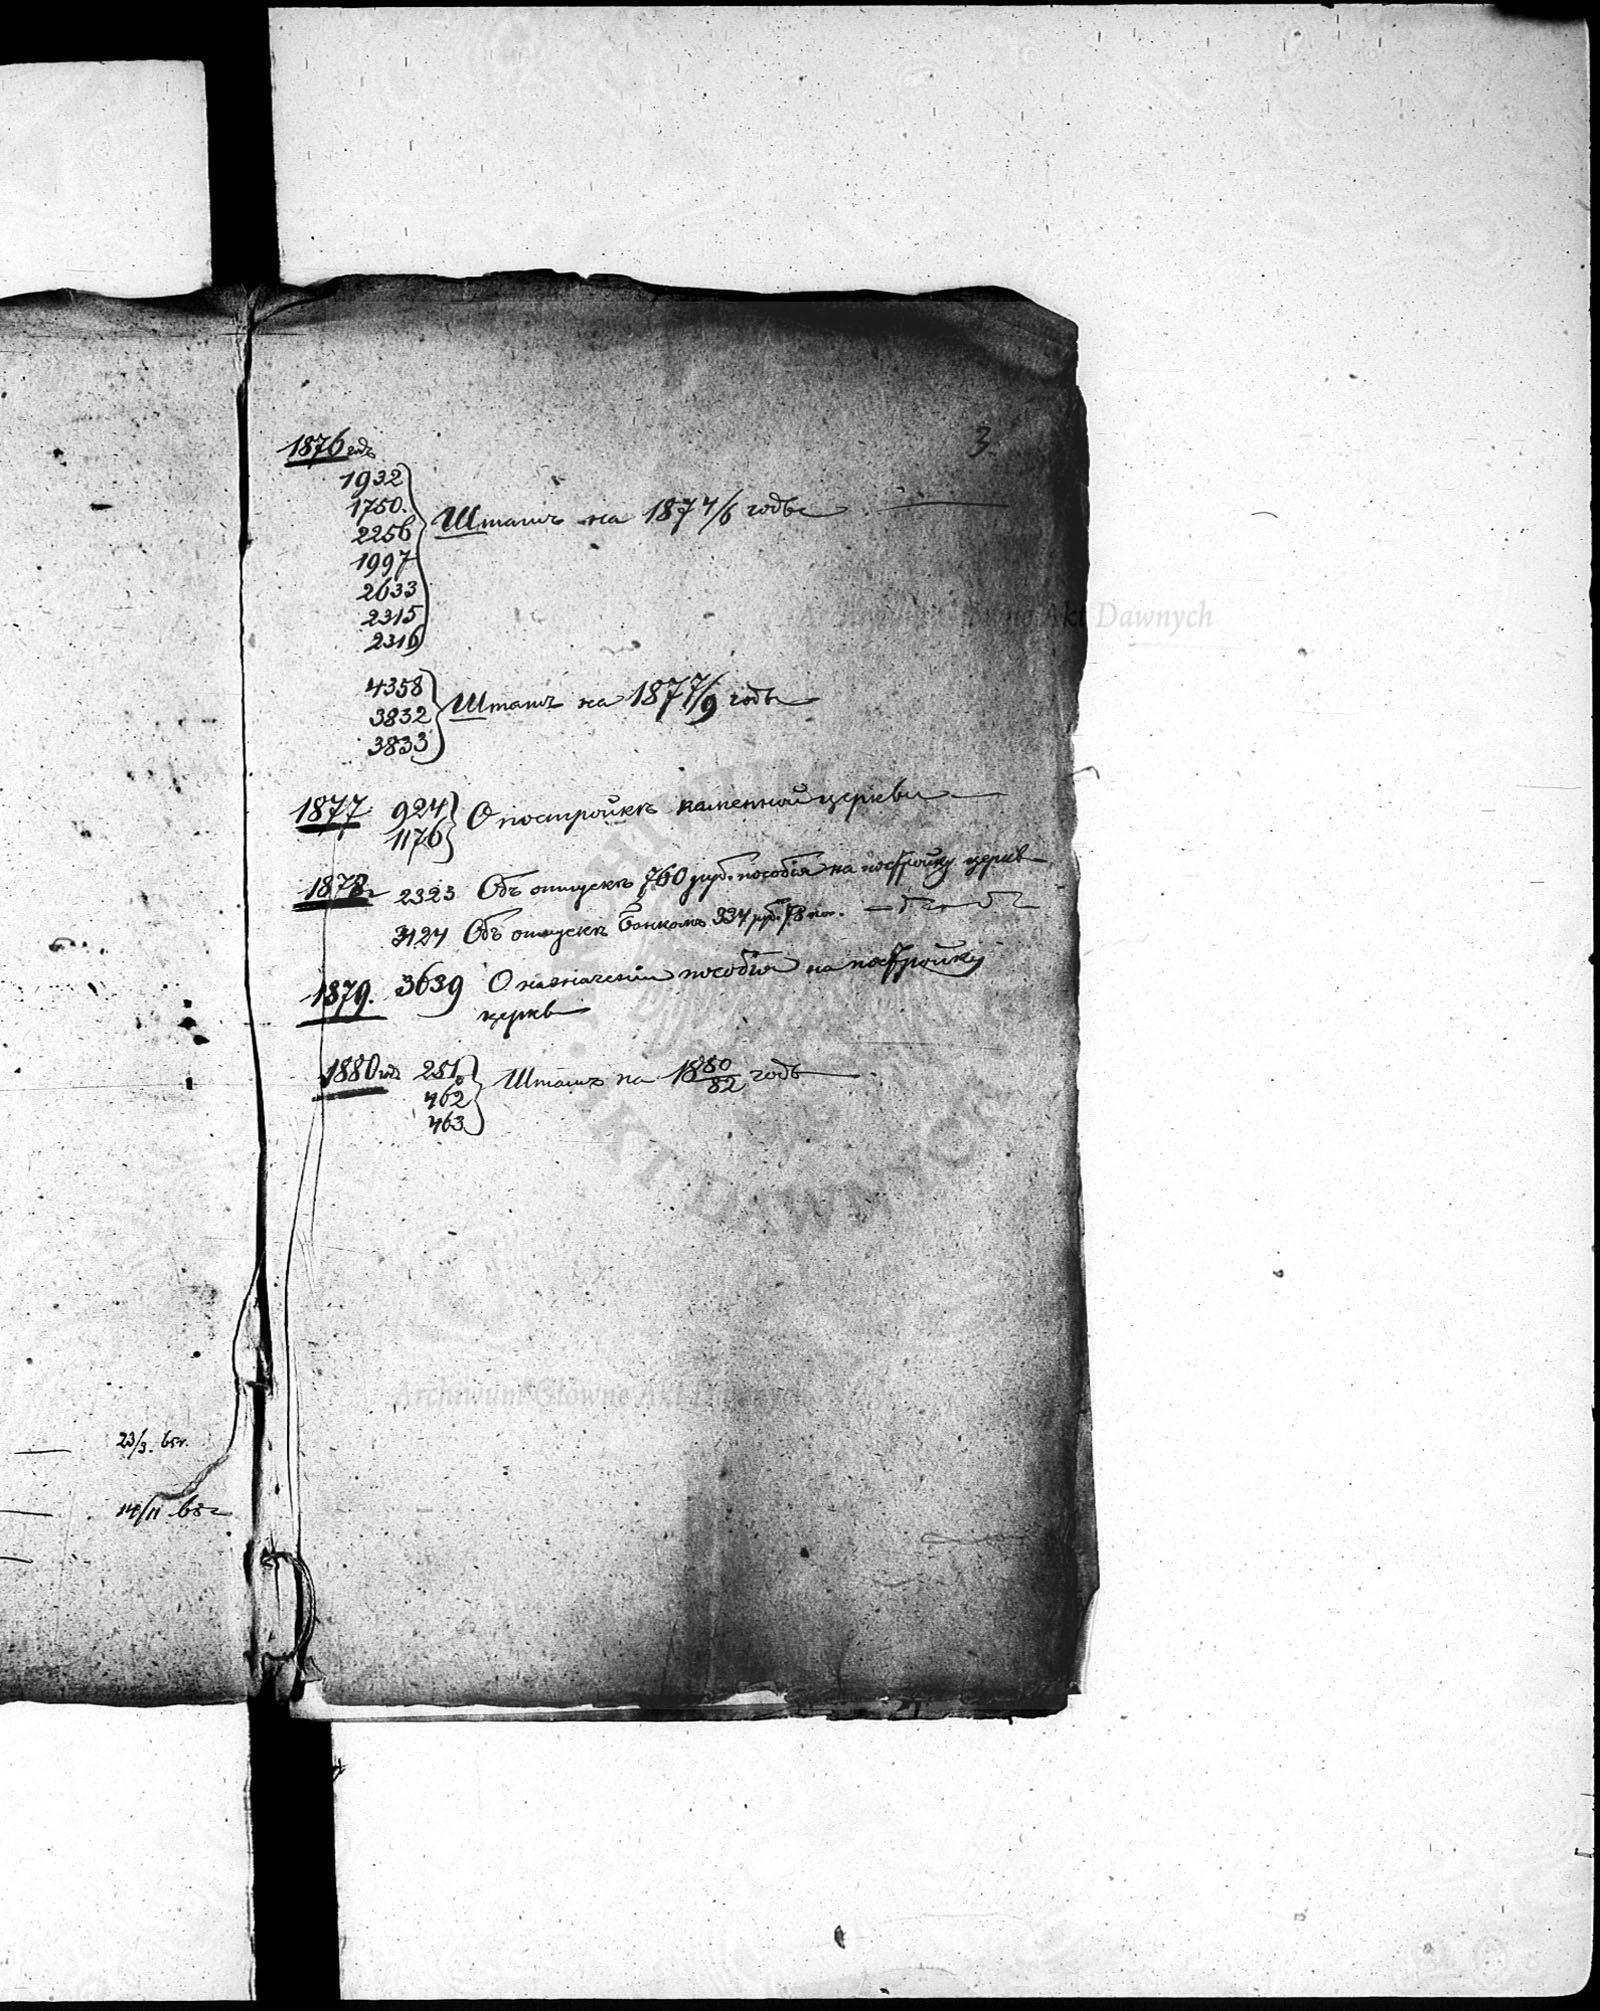 3
1876 годъ
1932
1750.
2256
1997
2633
2315
2316
Штатъ на 1874/6 годы
4358
3832
3833
Штатъ на 1877/9 годы
1877 924
1176
О постройкѣ каменной церкви
1878 2323 Объ отпускѣ 760 руб. пособія на постройку церкв
3124 Объ отпускѣ Банкомъ 334 руб. 78 коп.
1879. 3639 О назначеніи пособія на постройку
церкв
1880 годъ 251
462
463
Штатъ на 1880/82 годъ
23/3.
14/11
Archiwum Główne Akt Dawnych
Archiwum Główne Akt Dawnych
AKT DAWNYCH